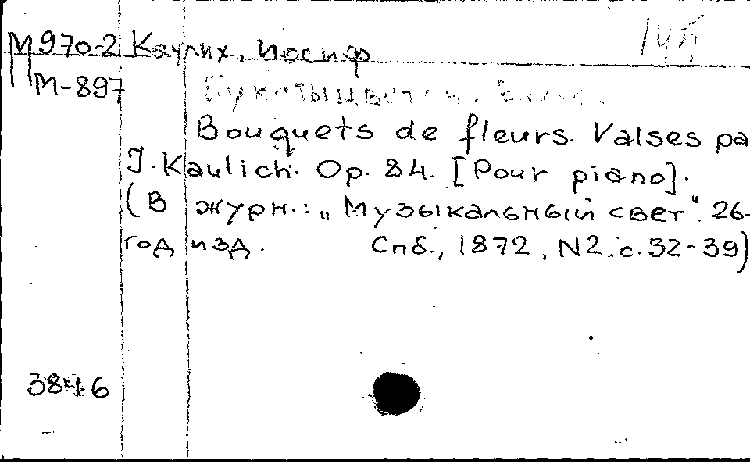 М970-2 Каулих, Иосиф
М-897
Букеты цветов.
Bouquets de fleurs. Valses pa
J. Kaulich. Op. 84. [Pour piano].
(В журн.: „Музыкальный свет". 26-
год изд. Спб., 1872, N2, с. 32-39)